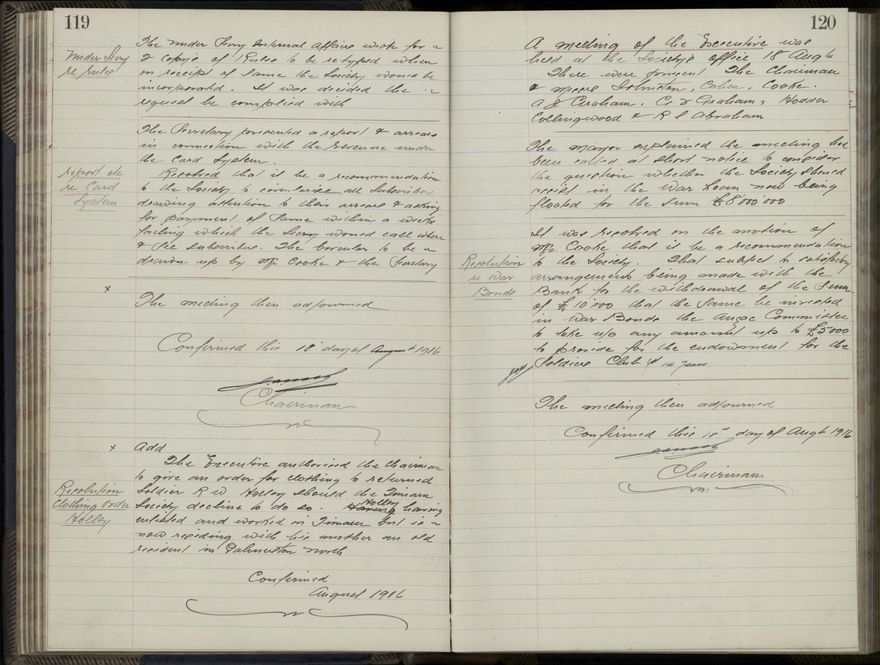 119
Under Secry
re Rules
The Under Secry Internal Affairs wrote for
2 copys of Rules to be retyped when
on receipt of same the Society would be
incorporated. It was decided the
request be complied with
The Secretary presented a report & arrears
in connection with the Revenue under
the Card System.
report etc
re Card
System
Resolved that it be a recommendation
to the Society to circularise all Subscribers
drawing attention to their arrears & asking
for payment of same within a week
failing which the Secry would call where
The Circular to be
drawn up by Mr Cooke & the Secretary
x
The meeting then adjourned
Confirmed this 18 day of August 1916
Chairman
x Add
Resolution
Clothing order
Holley
The Executive authorised the Chairman
to give an order for clothing to returned
Soldier R W Holley should the Timaru
Society decline to do so. Holley having
enlisted and worked in Timaru but is
now residing with his mother an old
resident in Palmerston North
Confirmed
August 1916
120
A meeting of the Executive was
held at the Society's office 18 Augt
There were present The Chairman
& Messrs Johnston, Cohen, Cooke,
A J Graham, C J Graham, Hodder
Collingwood & R S Abraham
The Mayor explained the meeting had
been called at short notice to consider
the question whether the Society should
assist in the War Loan now being
floated for the sum £8'000'000
Resolution
re War
Bonds
It was resolved on the motion of
Mr Cooke that it be a recommendation
to the Society. That subject to satisfactory
arrangements being made with the
Bank for the withdrawal of the sum
of £10'000 that the same be invested
in War Bonds the Committee
to take up any amount up to £5000
to provide for the endowment for the
Soldiers Club
The meeting then adjourned
Confirmed this day of Augt 1916
Chairman